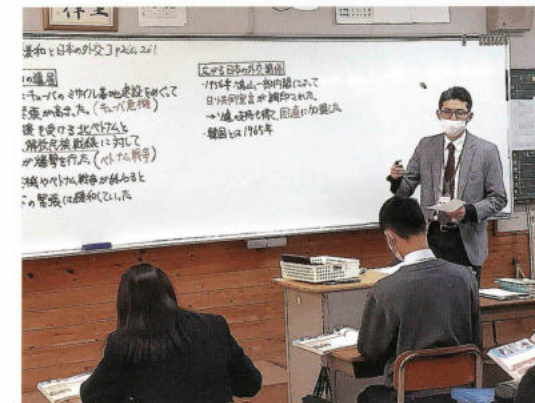 緩和と日本の外交】p260,261
キューバのミサイル基地建設をめぐって
緊張が高まった。(キューバ危機)
援を受ける北ベトナムと
解放民族戦線に対して
が爆撃を行た(ベトナム戦争)
危機やベトナム戦争が終わると
の緊張は緩和していった
広がる日本の外交関係
・1956年 鳩山一郎内閣によって
日ソ共同宣言が調印された。
→ソ連の支持も得て、国連に加盟した
・韓国とは1965年